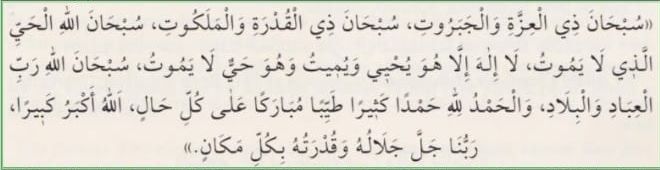 «سُبْحَانَ ذِي الْعِزَّةِ وَالْجَبَرُوتِ، سُبْحَانَ ذِي الْقُدْرَةِ وَالْمَلَكُوتِ، سُبْحَانَ اللهِ الْحَيِّ
الَّذِي لَا يَمُوتُ، لَا إِلٰهَ إِلَّا هُوَ يُحْيِي وَيُمِيتُ وَهُوَ حَيٌّ لَا يَمُوتُ، سُبْحَانَ اللهِ رَبِّ
الْعِبَادِ وَالْبِلَادِ، وَالْحَمْدُ لِلهِ حَمْدًا كَثِيرًا طَيِّبًا مُبَارَكًا عَلٰى كُلِّ حَالٍ، اَللهُ أَكْبَرُ كَبِيرًا،
رَبُّنَا جَلَّ جَلَالُهُ وَقُدْرَتُهُ بِكُلِّ مَكَانٍ.»